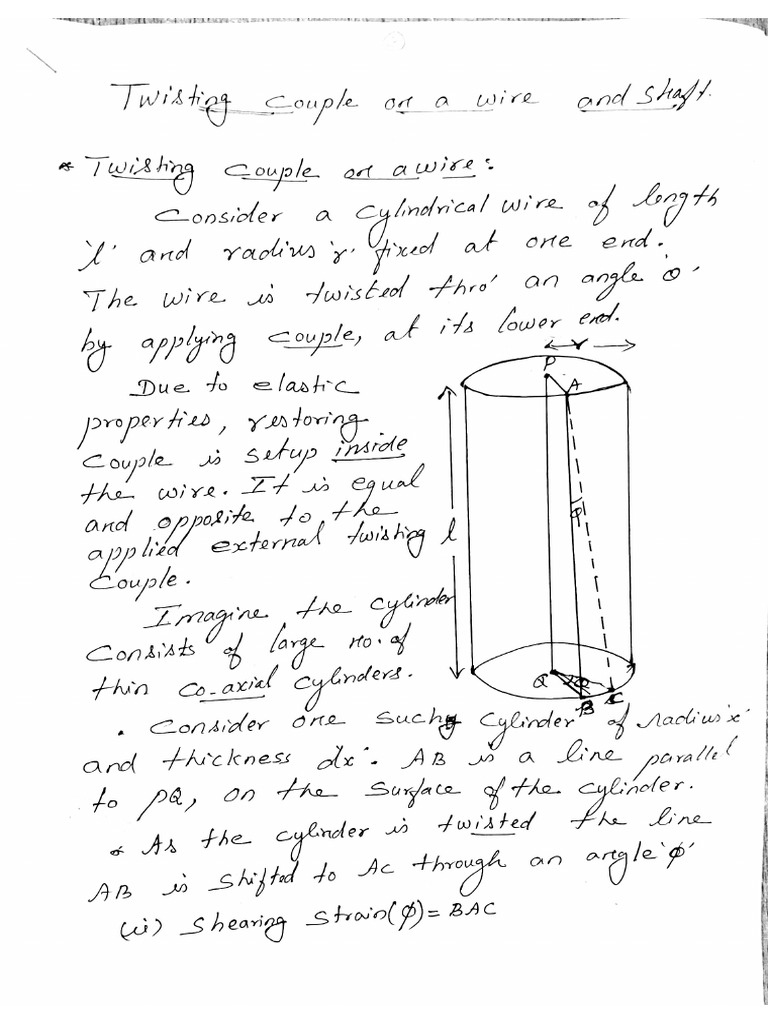 Twisting Couple on a wire and shaft.
* Twisting Couple on a wire:
Consider a cylindrical wire of length
'l' and radius 'r' fixed at one end.
The wire is twisted thro' an angle 'θ'
by applying couple, at its lower end.
Due to elastic
properties, restoring
couple is setup inside
the wire. It is equal
and opposite to the
applied external twisting
couple.
Imagine the cylinder
consists of large no. of
thin co-axial cylinders.
. Consider one such cylinder of radius 'x'
and thickness dx'. AB is a line parallel
to PQ, on the surface of the cylinder.
* As the cylinder is twisted the line
AB is shifted to AC through an angle 'ϕ'
(ii) Shearing Strain(ϕ) = BAC
r
P
A
ϕ
l
Q
θ
B
C